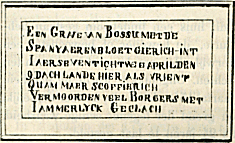 EEN GRAEVAN BOSSU MET DE
SPANYAEREN BLOET GIERICH INT
IAER SEVENTICH TWEE APRIL DEN
9 DACH LANDE HIER ALS VRIENT
QUAM MAER SCOFFIERICH
VERMOORDEN VEEL BORGERS MET
IAMMERLYCK GECLACH